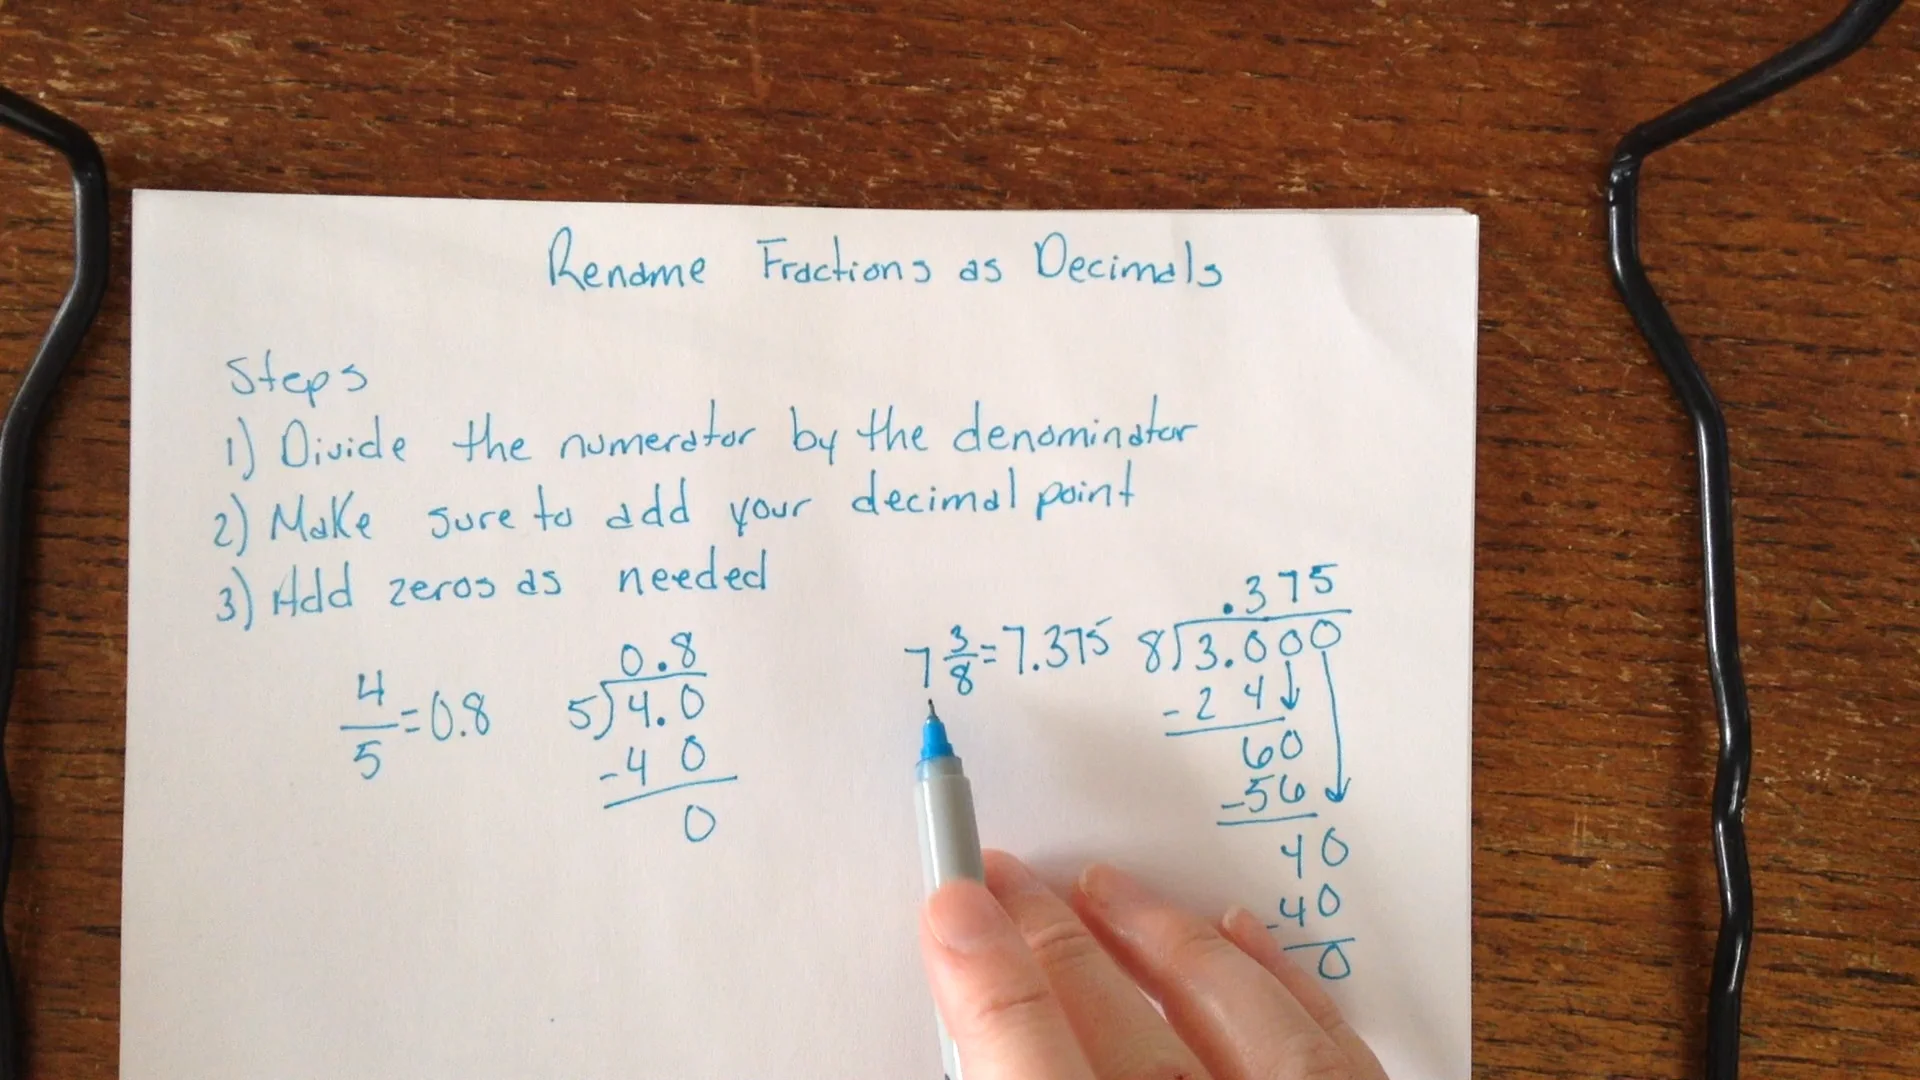 Rename Fractions as Decimals
Steps
1) Divide the numerator by the denominator
2) Make sure to add your decimal point
3) Add zeros as needed
4/5 = 0.8
0.8
5)4.0
-40
0
7 3/8 = 7.375
.375
8)3.000
-24
60
-56
40
-40
0